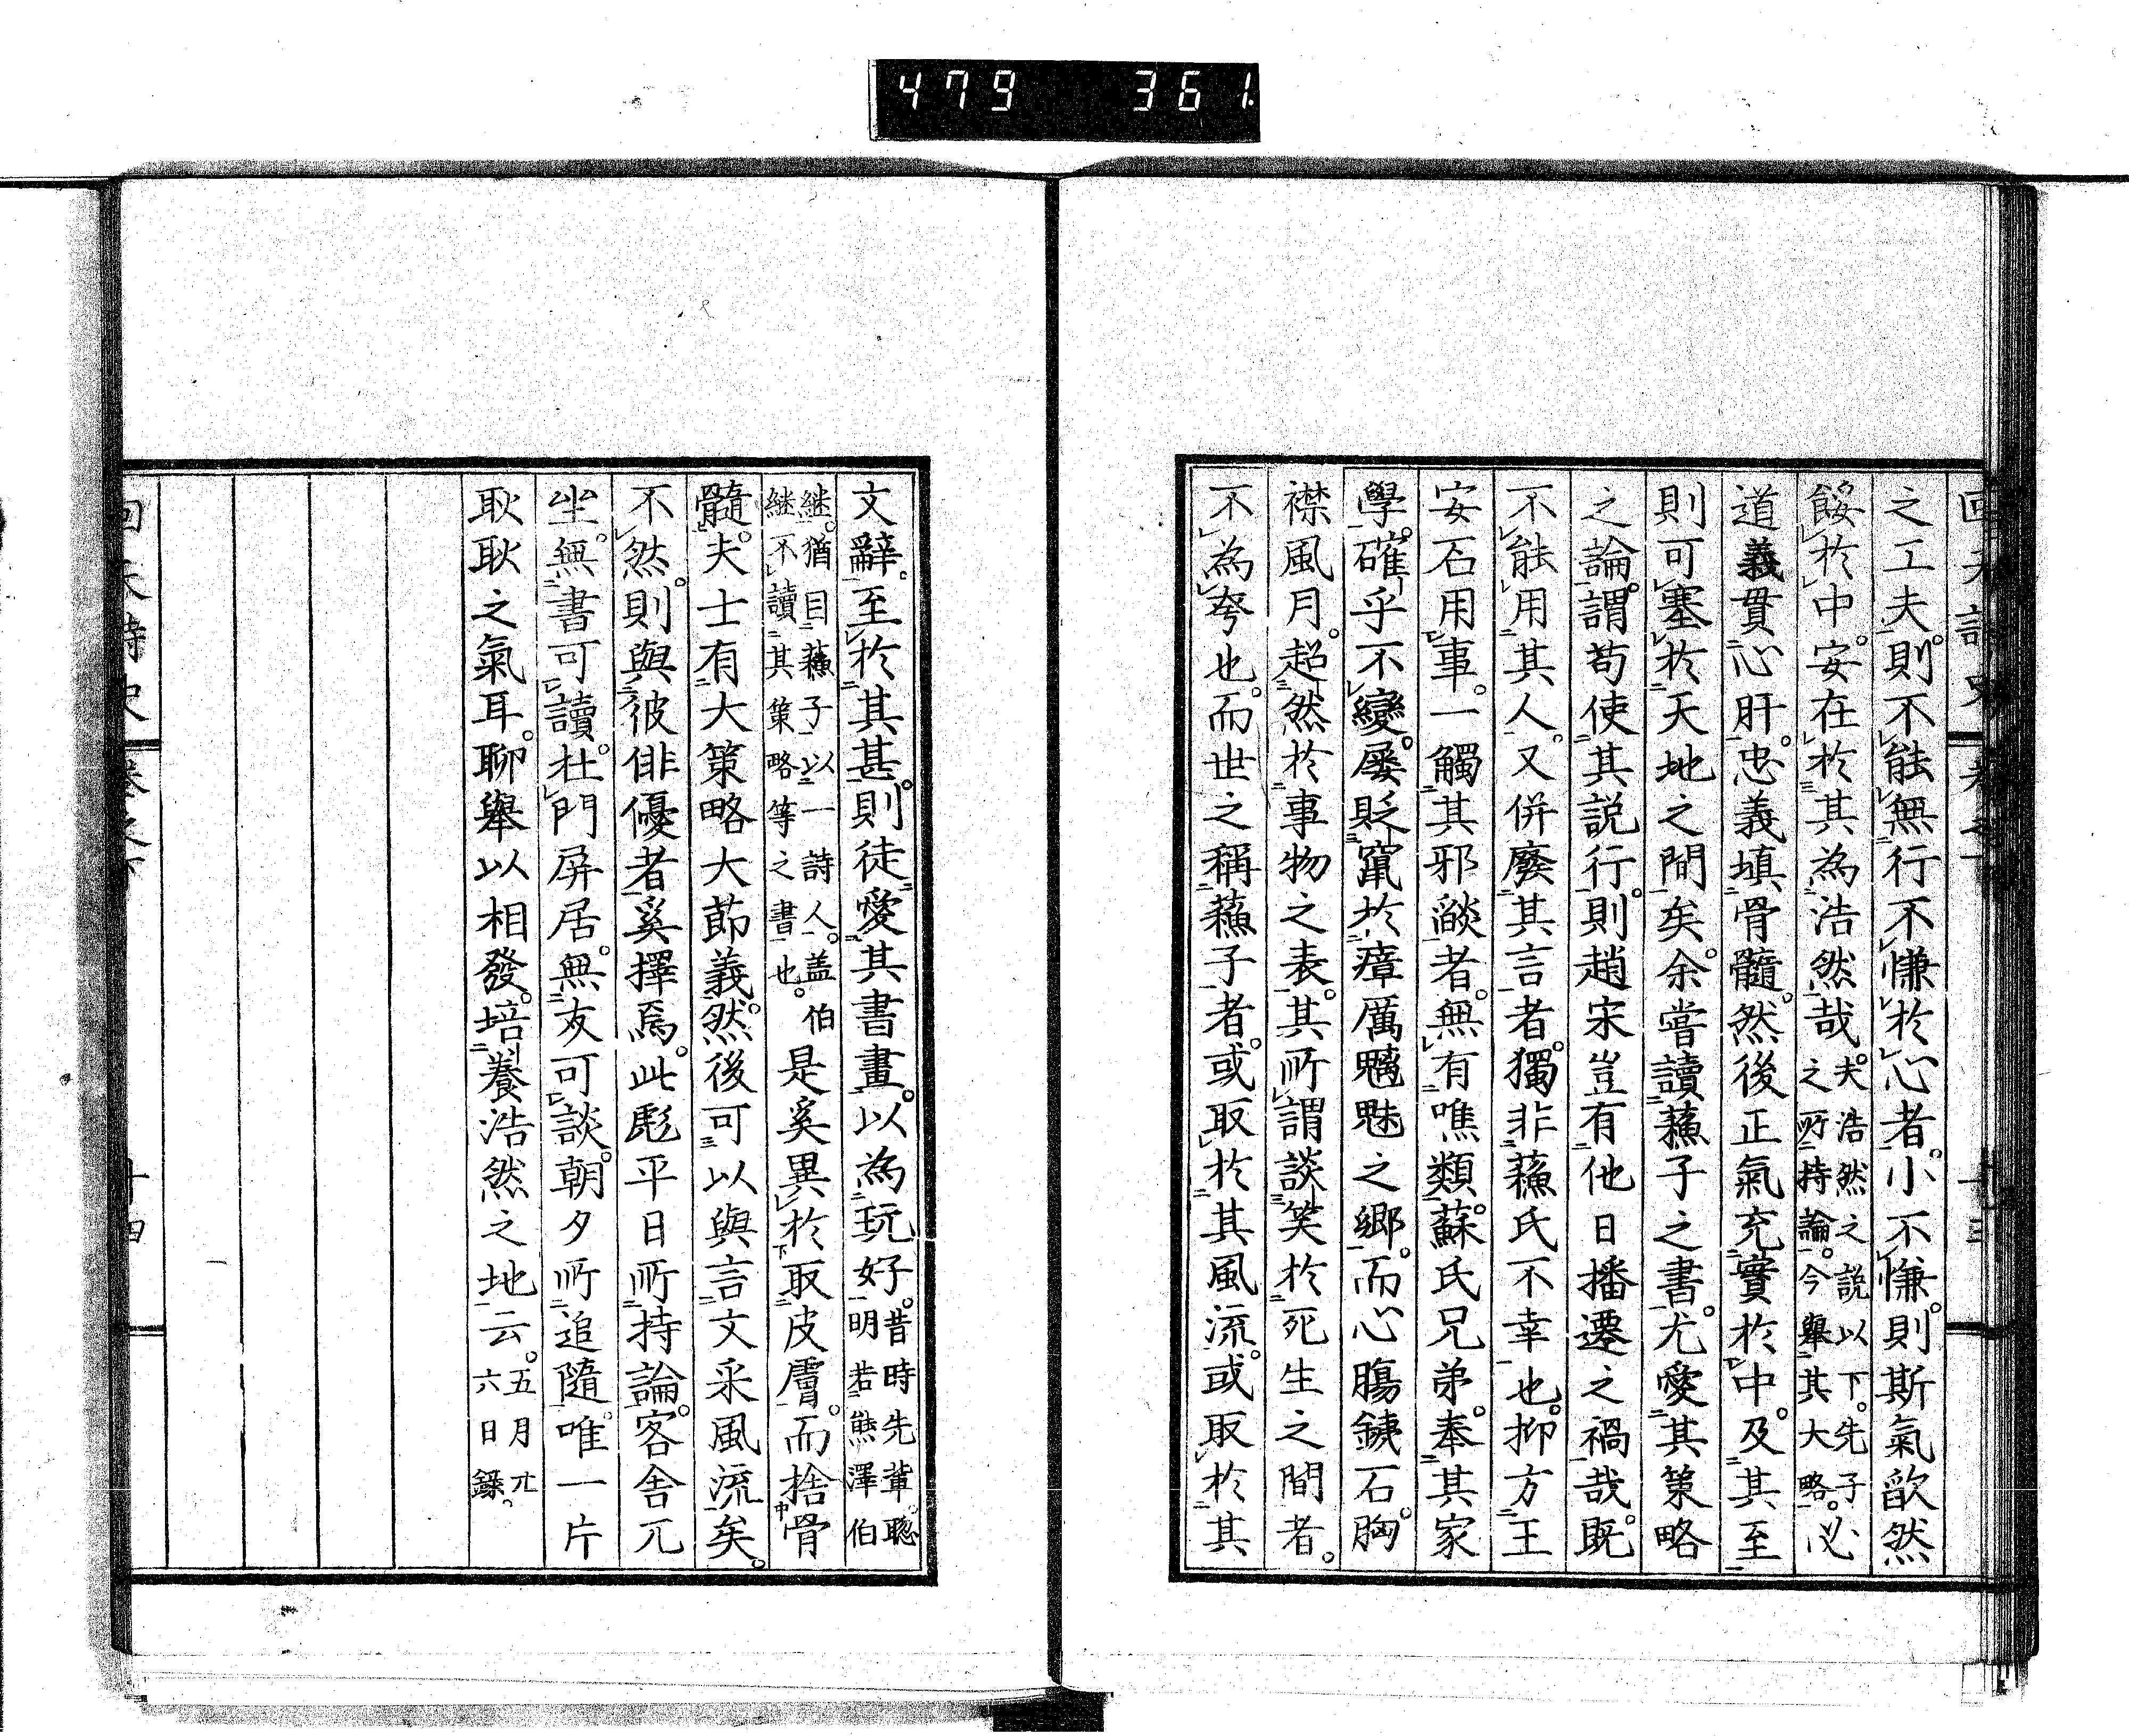 479 361
之工夫。則不能無行不慊於心者。小不慊。則斯氣歆然
餒於中。安在於其為浩然哉。夫浩然之說以下。先子之所持論。今舉其大略。必
道義貫心肝。忠義填骨髓。然後正氣充實於中。及其至
則可塞於天地之間矣。余嘗讀蘓子之書。尤愛其策略
之論。謂苟使其說行。則趙宋豈有他日播遷之禍哉。既
不能用其人。又併廢其言者。獨非蘓氏不幸也。抑方王
安石用事。一觸其邪燄者。無有噍類。蘇氏兄弟。奉其家
學。確乎不變。屡貶竄於瘴厲魑魅之鄉。而心膓銕石。胸
襟風月。超然於事物之表。其所謂談笑於死生之間者。
不為夸也。而世之稱蘓子者。或取於其風流。或取於其
文辭。至於其甚。則徒愛其書畫。以為玩好。昔時先輩聡明若熊澤伯
継。猶目蘓子以一詩人。盖伯継不讀其策略等之書也。是奚異於取皮膚。而捨骨
髓。夫士有大策略大節義。然後可以與言文采風流矣。
不然。則與彼俳優者奚擇焉。此彪平日所持論。客舍兀
坐。無書可讀。杜門屏居。無友可談。朝夕所追隨。唯一片
耿耿之氣耳。聊舉以相發。培養浩然之地云。五月廿六日録。
回天詩史
卷之下
十四